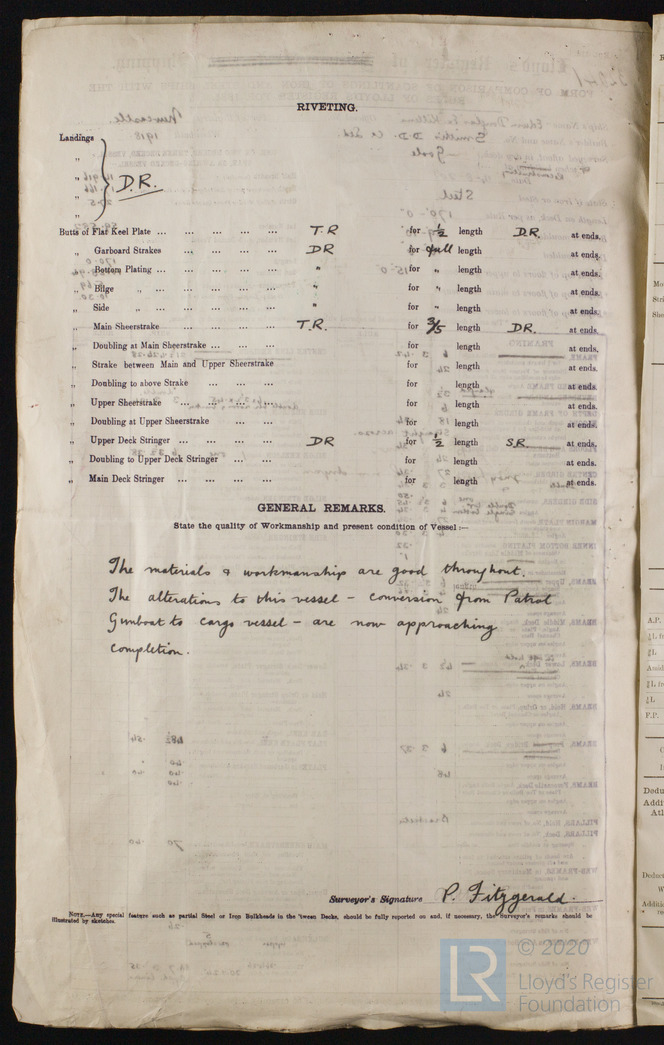 RIVETING.
Landings
„
„
„
„
D.R.
Butts of Flat Keel Plate ... ... ... ... ... T.R for ½ length D.R. at ends.
„ Garboard Strakes ... ... ... ... DR for full length at ends.
„ Bottom Plating ... ... ... ... ... " for " length at ends.
„ Bilge „ ... ... ... ... ... " for " length at ends.
„ Side „ ... ... ... ... ... " for " length at ends.
„ Main Sheerstrake ... ... ... ... T.R. for 3/5 length DR. at ends.
„ Doubling at Main Sheerstrake ... ... ... for length at ends.
„ Strake between Main and Upper Sheerstrake for length at ends.
„ Doubling to above Strake ... ... ... for length at ends.
„ Upper Sheerstrake ... ... ... ... for length at ends.
„ Doubling at Upper Sheerstrake ... ... for length at ends.
„ Upper Deck Stringer ... ... ... ... DR for ½ length S.R. at ends.
„ Doubling to Upper Deck Stringer ... ... for length at ends.
„ Main Deck Stringer ... ... ... ... for length at ends.
GENERAL REMARKS.
State the quality of Workmanship and present condition of Vessel:—
The materials & workmanship are good throughout.
The alterations to this vessel - conversion from Patrol
Gunboat to cargo vessel - are now approaching
completion.
Surveyor's Signature P. Fitzgerald.
NOTE.—Any special feature such as partial Steel or Iron Bulkheads in the 'tween Decks, should be fully reported on and, if necessary, the Surveyor's remarks should be
illustrated by sketches.
© 2020
LR
Lloyd's Register
Foundation